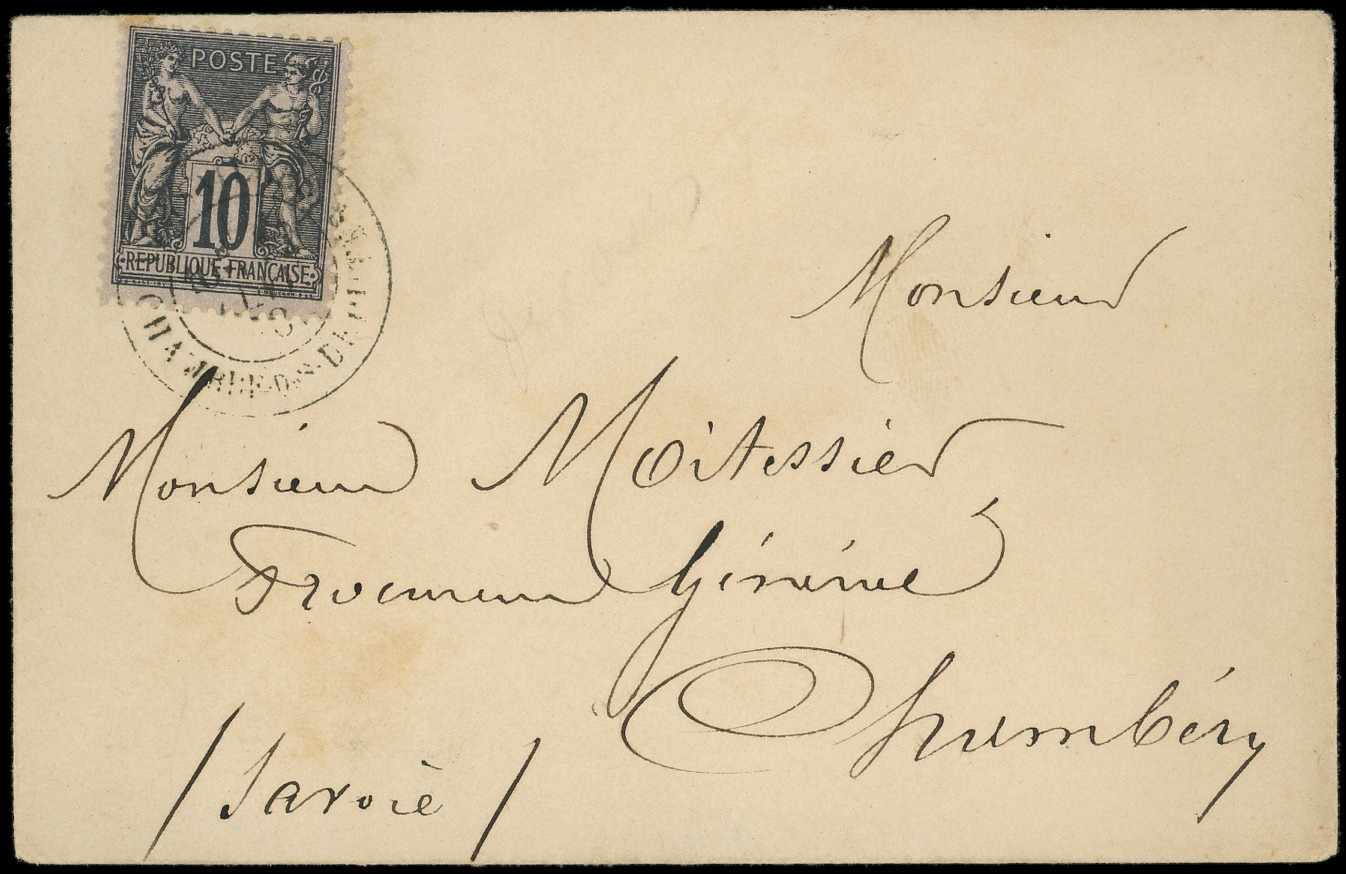 POSTE
10
REPUBLIQUE FRANÇAISE
CHAMBRE-DES-DEPU
Monsieur
Monsieur Moitessier
Procureur Général
Chambéry
/Savoie/